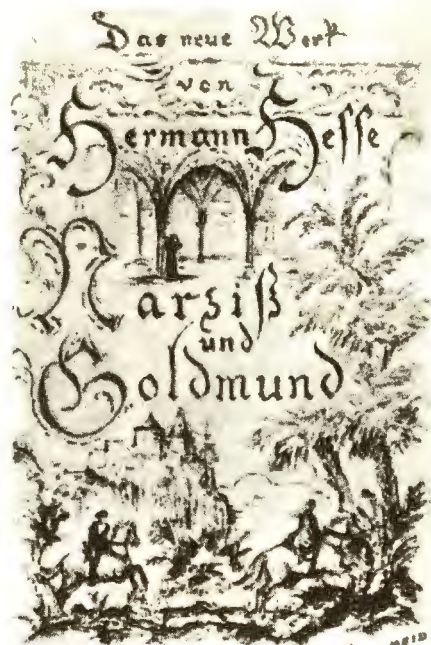 Das neue Werk
von
Hermann Hesse
Narziß
und
Goldmund